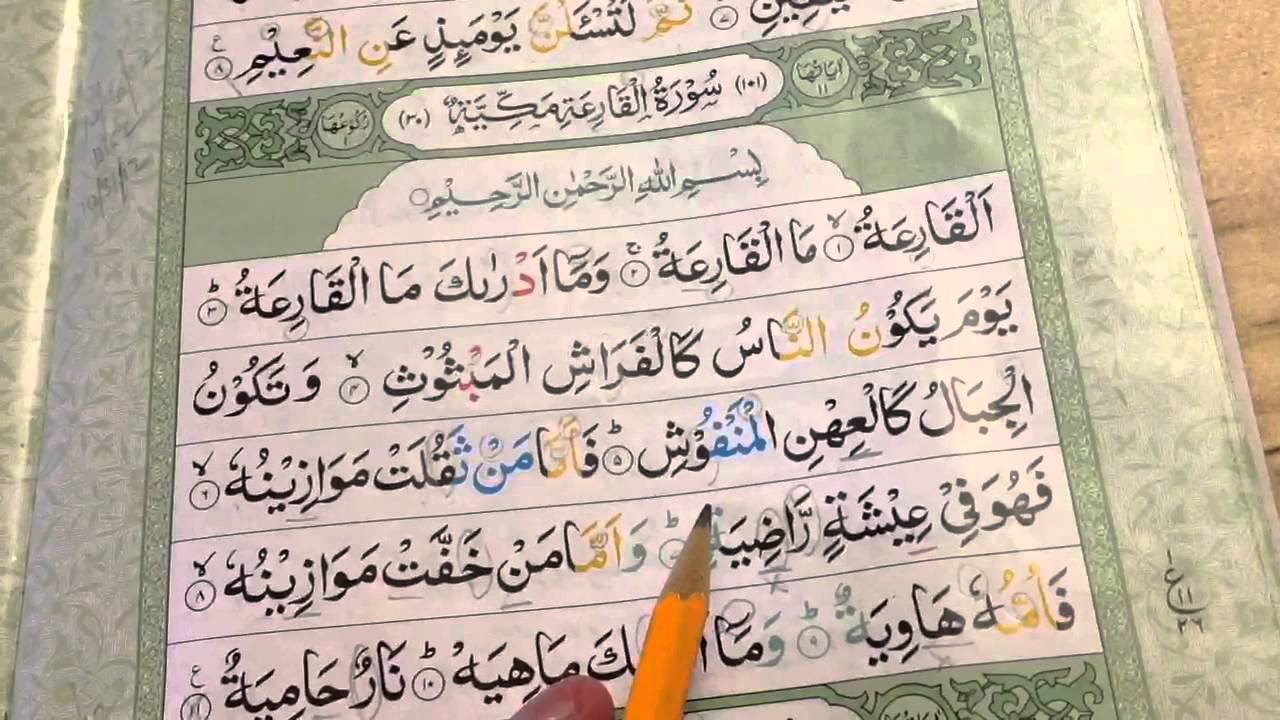 ثُمَّ لَتُسْـَٔلُنَّ يَوْمَىِٕذٍ عَنِ النَّعِيْمِ ۸
اٰيَاتُهَا ۱۱ (۱۰۱) سُوْرَةُ الْقَارِعَةِ مَكِّيَّةٌ (۳۰) رُكُوْعُهَا
بِسْمِ اللهِ الرَّحْمٰنِ الرَّحِيْمِ
اَلْقَارِعَةُ ۱ مَا الْقَارِعَةُ ۲ وَمَاۤ اَدْرٰىكَ مَا الْقَارِعَةُ ۳
يَوْمَ يَكُوْنُ النَّاسُ كَالْفَرَاشِ الْمَبْثُوْثِ ۴ وَتَكُوْنُ
الْجِبَالُ كَالْعِهْنِ الْمَنْفُوْشِ ۵ فَاَمَّا مَنْ ثَقُلَتْ مَوَازِيْنُهٗ ۶
فَهُوَ فِيْ عِيْشَةٍ رَّاضِيَةٍ وَاَمَّا مَنْ خَفَّتْ مَوَازِيْنُهٗ ۸
فَاُمُّهٗ هَاوِيَةٌ ۹ وَمَاۤ مَاهِيَهْ ۱۰ نَارٌ حَامِيَةٌ ۱۱
ع ۱۱ ۲۶